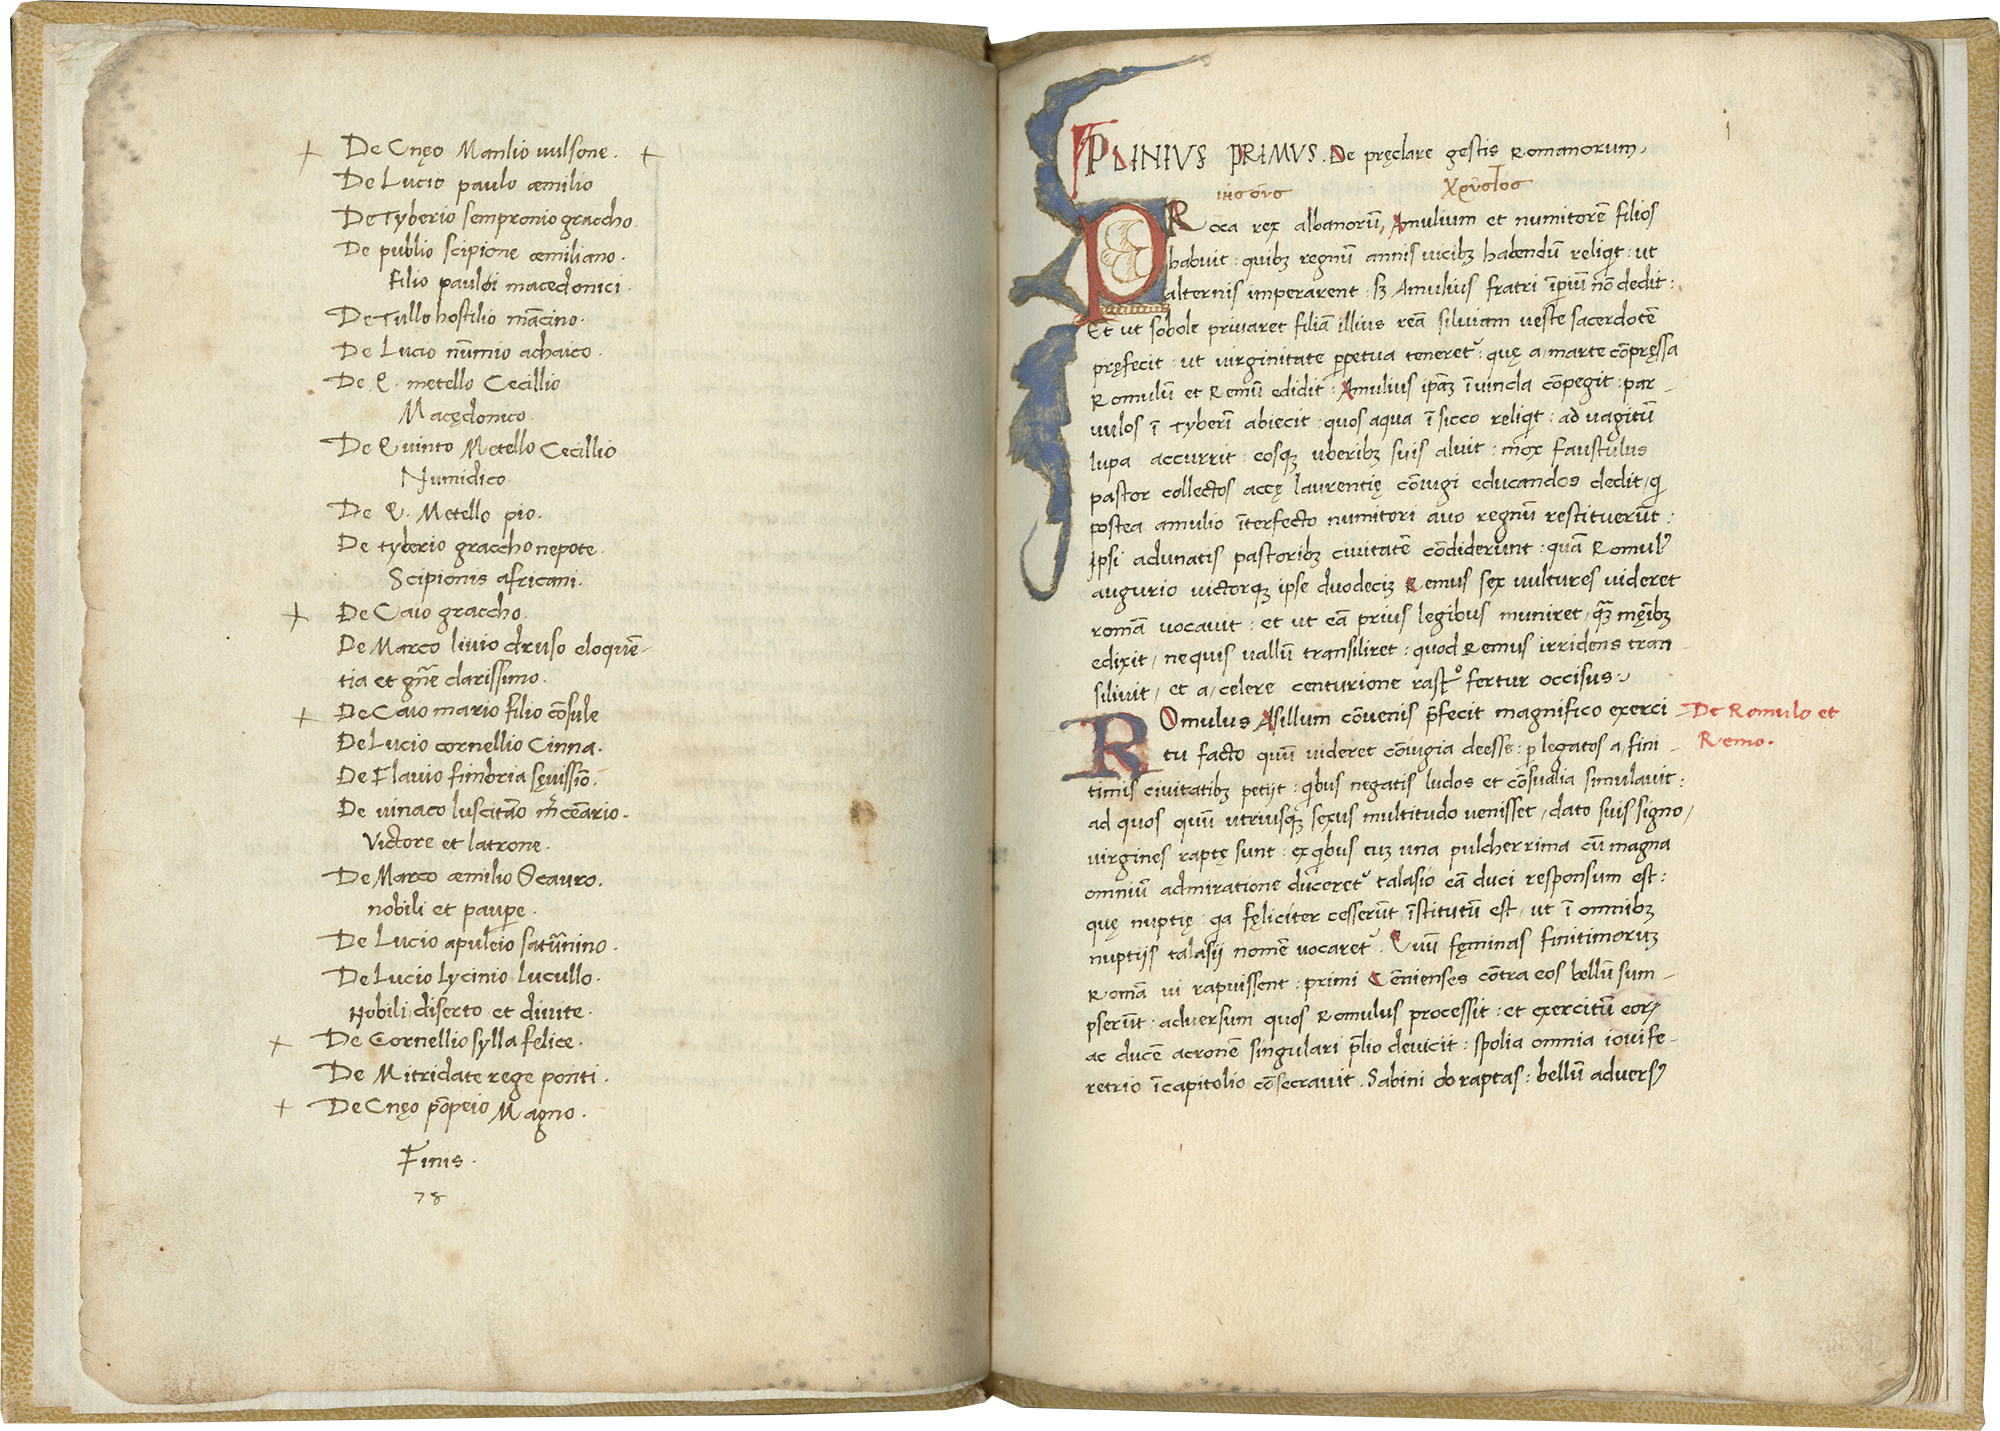 De Cnęo Manlio vulsone.
De Lucio paulo æmilio
De Tyberio sempronio graccho.
De publio scipione æmiliano.
filio pauloi macedonici.
De Tullo hostilio mācino.
De Lucio nūmio achaico.
De Q. metello Cecillio
Macędonico.
De Quinto Metello Cecillio
Numidico.
De Q. Metello pio.
De tyberio graccho nepote.
Scipionis africani.
De Caio graccho.
De Marco livio druso eloquē-
tia et gn̄e clarissimo.
De Caio mario filio cōsule
De Lucio cornellio Cinna.
De Flavio fimbria sęvissīo.
De viriaco luscitāo m̄cēario.
Victore et latrone.
De Marco æmilio Scauro.
nobili et paupe.
De Lucio apuleio satūnino.
De Lucio lycinio lucullo.
Nobili, diserto et divite.
De Cornellio sylla felice.
De Mitridate rege ponti.
De Cnęo pōpeio Magno.
Finis.
78
1
PLINIVS PRIMVS. De pręclare gestis Romanorum,
ιησουσ χρυστοσ
PRoca rex albanorū, Amulium et numitorē filios
habuit: quibꝫ regnū annis vicibꝫ habendū reliqit: ut
alternis imperarent: sꝫ Amulius fratri īpiū nō dedit:
Et ut sobole privaret filiā illius reā silviam veste sacerdotē
pręfecit: ut virginitate ppetua teneret᷒: quę a, marte cōpręssa
Romulū et Remū edidit: Amulius ipāꝫ ī vincla cōpegit: par-
vulos ī Tyberī abiecit: quos aqua ī sicco reliqit: ad vagitū
lupa accurrit: eosqꝫ uberibꝫ suis aluit: mox faustulus
pastor collectos accę laurentię cōiugi educandos dedit, qi
postea amulio īterfecto numitori avo regnū restituerūt:
ipsi adunatis pastoribꝫ civitatē cōdiderunt: quā Romulꝰ
augurio victorqꝫ ipse duodecīꝫ Remus sex vultures videret
romā vocavit: et ut eā prius legibus muniret, quāꝫ męībꝫ
edixit, nequis vallū transiliret: quod Remus irridens tran
silivit, et a, celere centurione rastº fertur occisus:
ROmulus Asillum cōvenis p̄fecit magnifico exerci-
tu facto quū videret cōiugia deesse: p legatos a, fini-
timis civitatibꝫ petijt: qibus negatis ludos et cōsualia simulavit:
ad quos quū utriusqꝫ sexus multitudo venisset, dato suis signo,
virgines raptę sunt: ex qibus cuꝫ una pulcherrima cū magna
omniū admiratione duceret᷒ talasio eā duci responsum est:
quę nuptię qa fęliciter cesserūt, īstitutū est, ut ī omnibꝫ
nuptijs talasij nomē vocaret᷒. Quū fęminas finitimoruꝫ
Romā vi rapuissent: primi Cēnienses cōtra eos bellū sum-
pserūt: adversum quos Romulus processit: et exercitū eoꝝ
ac ducē acronē singulari p̄lio devicit: spolia omnia iovi fe-
retrio ī capitolio cōsecravit. Sabini ob raptas: bellū adversꝰ
De Romulo et
Remo.